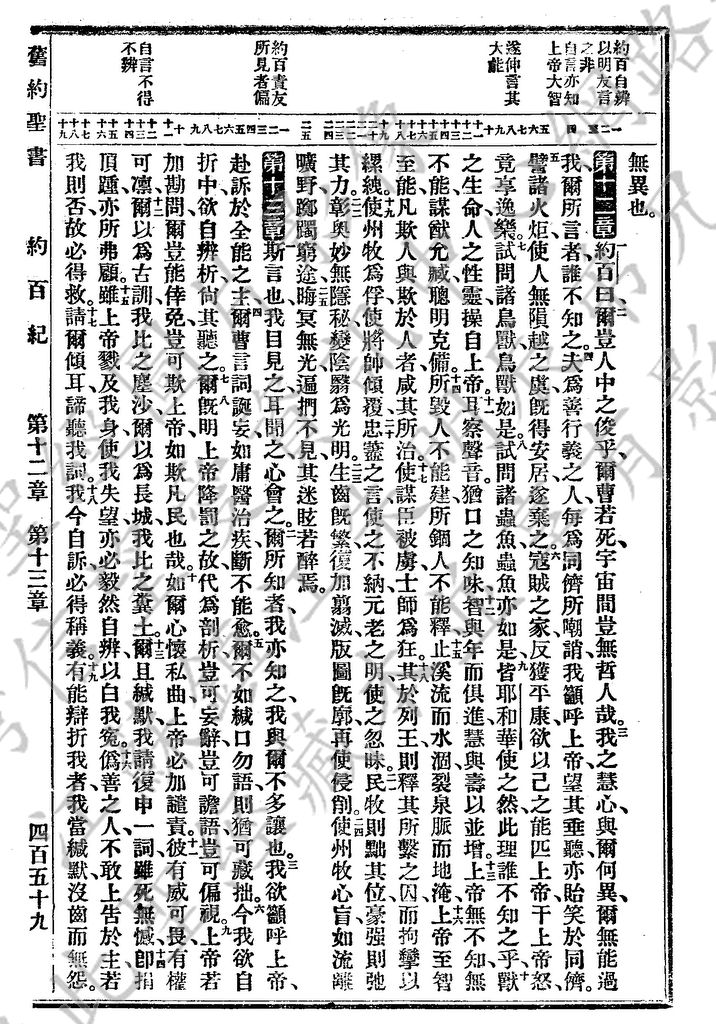 約百自辨
以明友言
之非
自言亦知
上帝大智
遂伸言其
大能
約百責友
所見者偏
自言不得
不辨
無異也。
第十二章 約百曰、爾豈人中之俊乎、爾曹若死、宇宙間豈無哲人哉。我之慧心、與爾何異、爾無能過
我、爾所言者、誰不知之、夫爲善行義之人、每爲同儕所嘲誚、我籲呼上帝、望其垂聽、亦貽笑於同儕。
譬諸火炬、使人無隕越之虞、旣得安居、遂棄之、寇賊之家、反獲平康、欲以己之能匹上帝、干上帝怒、
竟享逸樂、試問諸鳥獸、鳥獸如是、試問諸蟲魚、蟲魚亦如是、皆耶和華使之然、此理誰不知之乎、獸
之生命、人之性靈、操自上帝、耳察聲音、猶口之知味、智與年而俱進、慧與壽以並增、上帝無不知、無
不能、謀猷允臧、聰明克備、所毀人不能建、所錮人不能釋、止溪流而水涸、裂泉脈而地淹、上帝至智
至能、凡欺人與欺於人者、咸其所治、使謀臣被虜、士師爲狂、其於列王、則釋其所繫之囚、而拘攣以
縲絏、使州牧爲俘、使將帥傾覆、忠藎之言、使之不納、元老之明、使之忽昧、民牧則黜其位、豪强則弛
其力、彰奧妙、無隱秘、變陰翳、爲光明、生齒旣繁、復加翦滅、版圖旣廓、再使侵削、使州牧心盲、如流離
曠野、躑躅窮途、晦冥無光、遍捫不見、其迷眩若醉焉。
第十三章 斯言也、我目見之、耳聞之、心會之、爾所知者、我亦知之、我與爾不多讓也、我欲籲呼上帝、
赴訴於全能之主、爾曹言詞誕妄、如庸醫治疾、斷不能愈、爾不如緘口勿語、則猶可藏拙、今我欲自
折中、欲自辨析、尙其聽之、爾旣明上帝降罰之故、代爲剖析、豈可妄辭、豈可譫語、豈可偏視、上帝若
加勘問、爾豈能倖免、豈可欺上帝、如欺凡民也哉、如爾心懷私曲、上帝必加譴責、彼有威可畏、有權
可凜、爾以爲古訓、我比之塵沙、爾以爲長城、我比之糞土、爾且緘默、我請復申一詞、雖死無憾、卽捐
頂踵亦所弗顧、雖上帝戮及我身、使我失望、亦必毅然自辨、以白我寃、僞善之人、不敢上告於主、若
我則否、故必得救、請爾傾耳、諦聽我詞、我今自訴、必得稱義、有能辯折我者、我當緘默、沒齒而無怨。
舊約聖書 約百紀 第十二章 第十三章 四百五十九